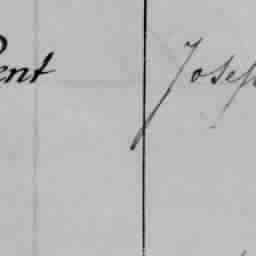 ent Josep